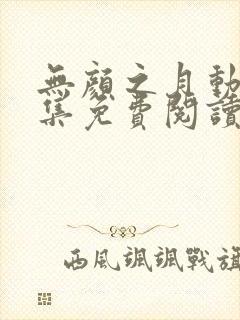 無顏之月動
集免費閱讀
西風颯颯戰旗